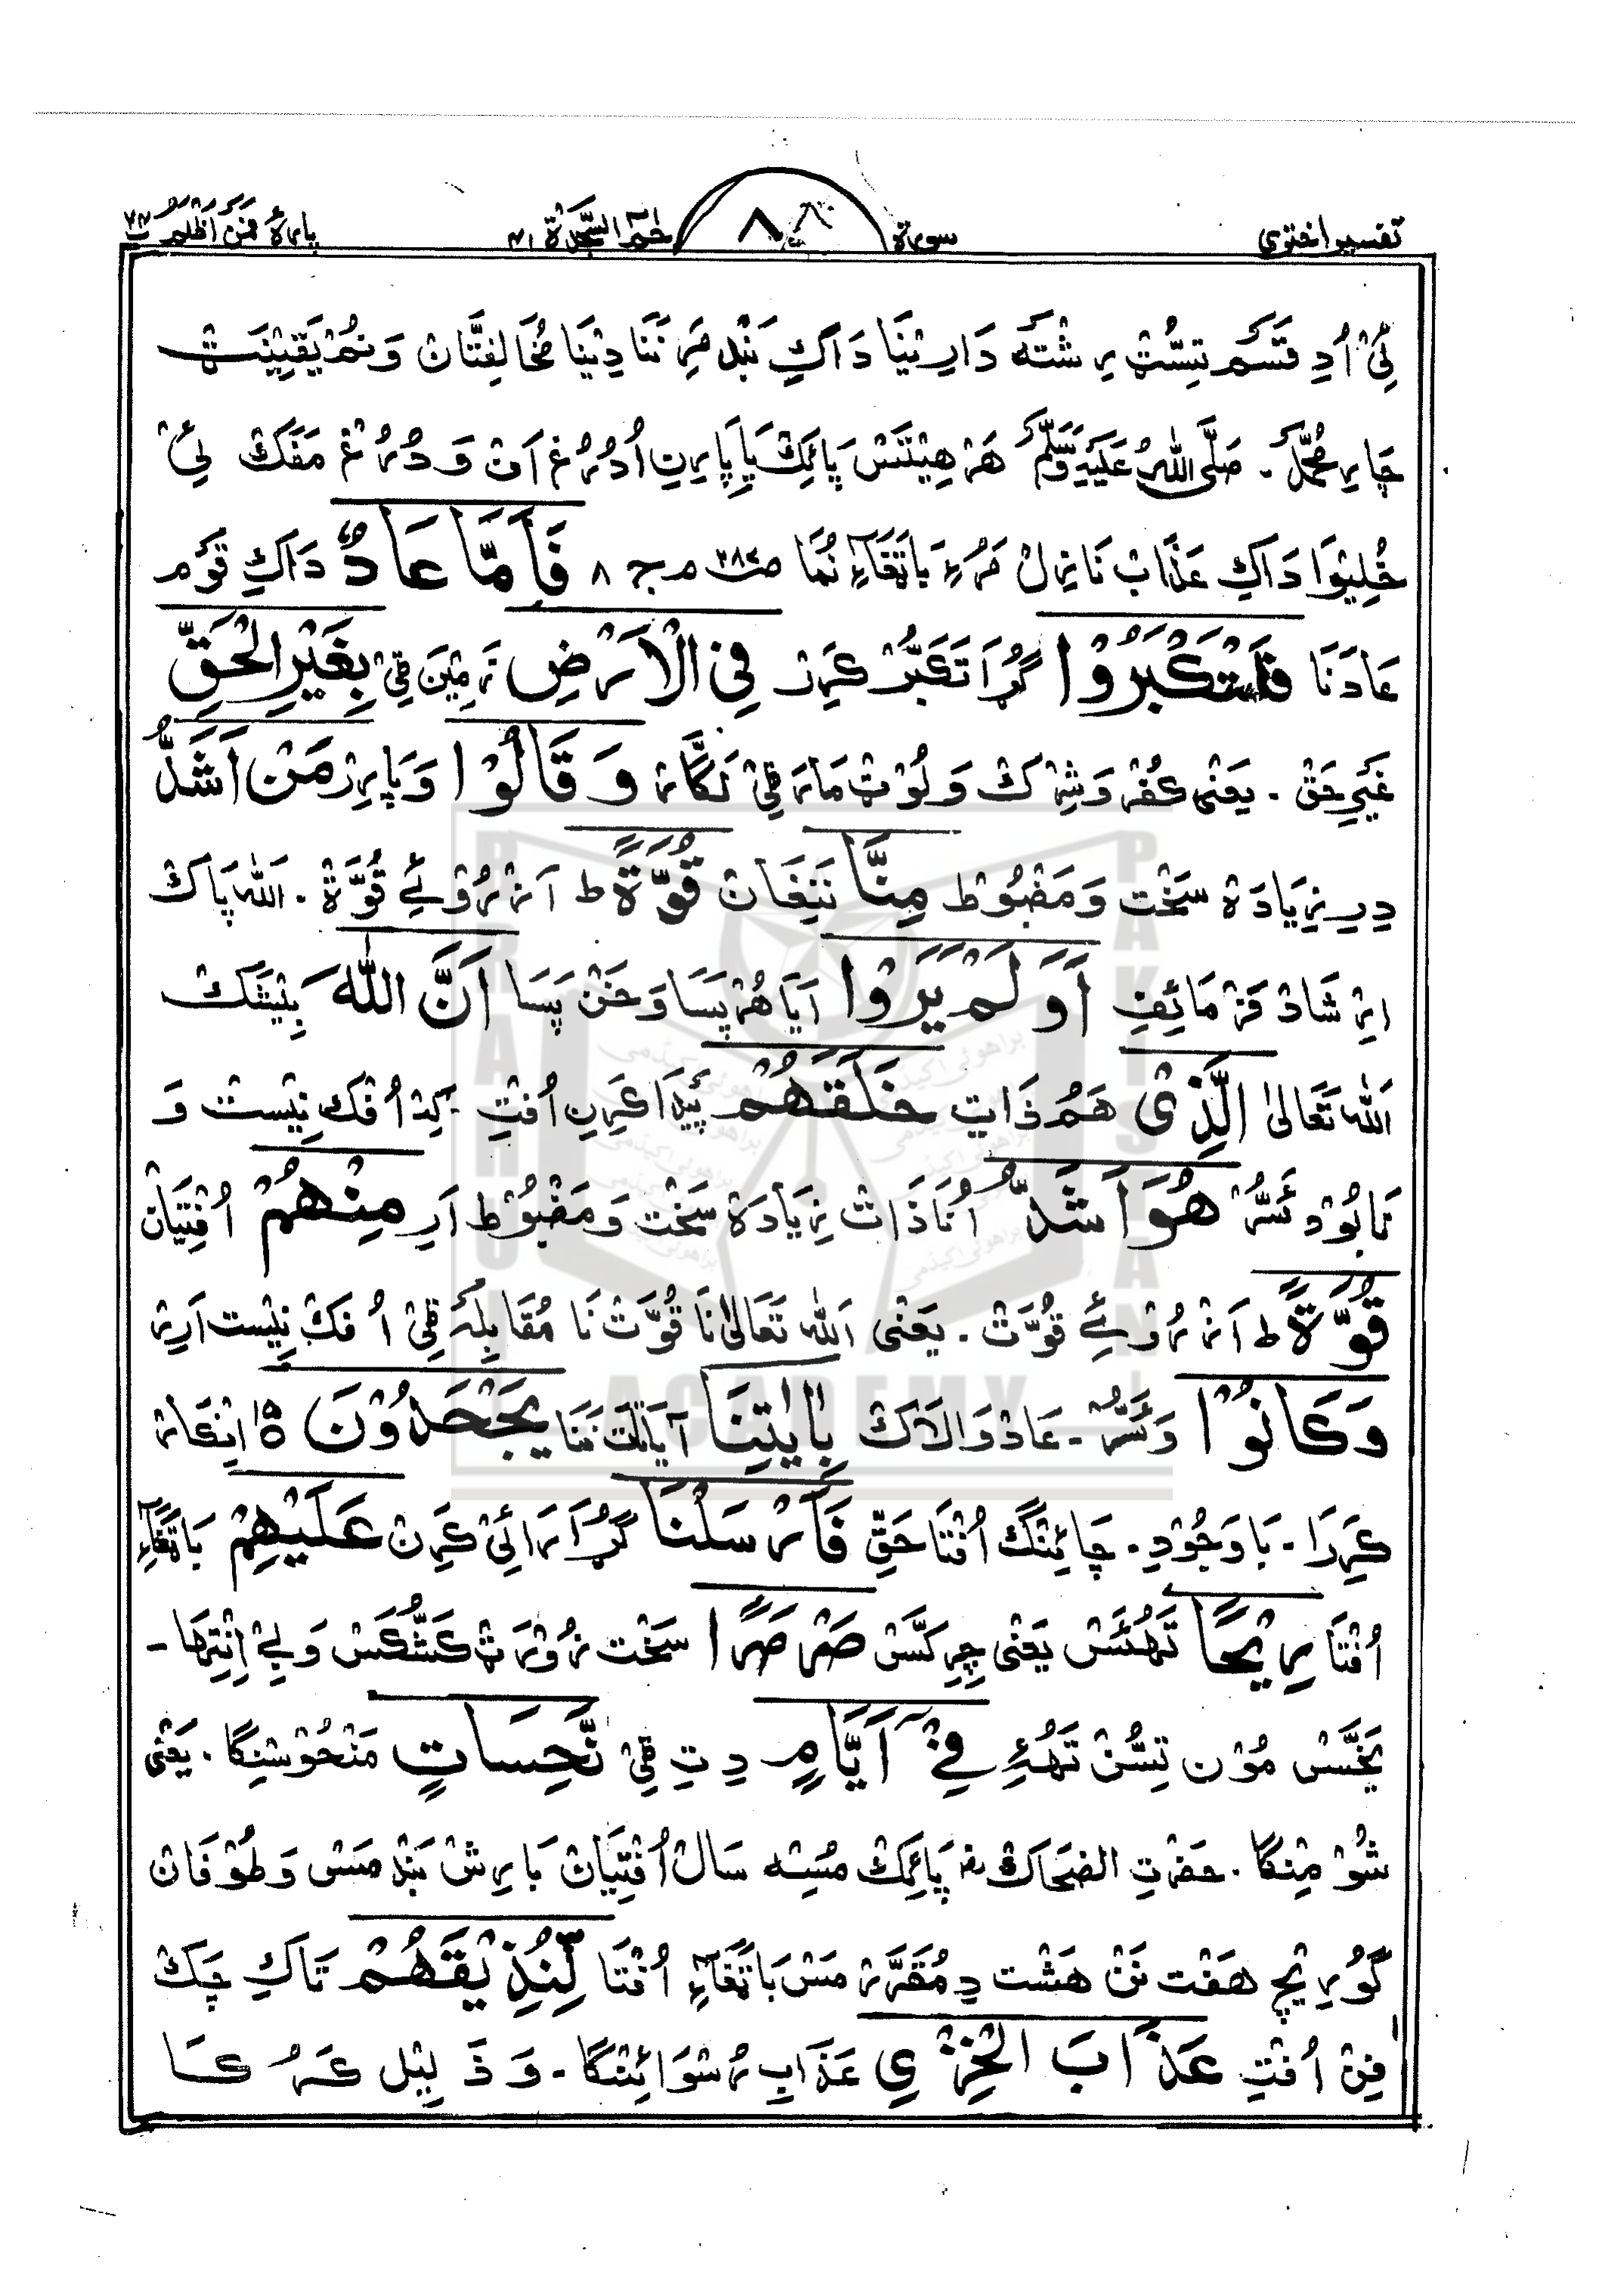 تفسیر اختری سورۃ ٨ حٰمٓ السَّجْدَۃ ٤١ پارۂ فَمَنْ اَظْلَمُ
ئی اُدِ قَسَم تِسُّٹ رِشْتَہ دَارِیْنَا دَاکِ بَنْد مَرِ نَنَا دِیْنَا مُخَالِفَتَّان وَنُمْ یَقِیْنَٹ
چَارِ مُحَمَّد۔ صَلَّی اللّٰہُ عَلَیْہِ وَسَلَّم ھَرْ ھِیْتَسْ پَائِکْ پَا پَارِنِ اُدُرُغ اَنْ وَ دُرُغ مَفَکْ لِئی
خُلِیْوَا دَاکِ عَذَابْ نَازِل مَرُءِ بَاتَغَآءِ نُمَا ص ۲۸۲ ج ۸ فَاَمَّا عَادٌ دَاکِ قَوْم
عَادَنَا فَاسْتَکْبَرُوْا گُڑَا تَکَبُّر کَرِرْ فِی الْاَرْضِ زَمِیْنَ قِیْ بِغَیْرِ الْحَقِّ
غَیْرِ حَقْ۔ یَعْنی کُفْر وَشِرْک وَلُوْٹ مَارَ قِیْ لَگَّارْ وَقَالُوْا وَپَارِرْ مَنْ اَشَدُّ
دِرِ زِیَادَہ سَخْت وَمَضْبُوْط مِنَّا نَنِغَان قُوَّۃً ط اَزْ رُوْئے قُوَّۃ۔ اَللّٰہ پَاک
اِرْشَادْ فَرْمَائِفِ اَوَلَمْ یَرَوْا اٰیَا ھُرْپَسَا وَخَنْ پَسَا اَنَّ اللّٰہَ بِیْشَکْ
اَللّٰہ تَعَالیٰ الَّذِیْ ھَمُ ذَاتِ خَلَقَھُمْ پَیْدَا کَرِنِ اُفْتِ۔ کِہ اُفْک نِیْسْت وَ
نَابُوْد ئَسُّرْ ھُوَ اَشَدُّ اُنَا ذَاتْ زِیَادَہ سَخْت وَمَضْبُوْط اَرِ مِنْھُمْ اُفْتِیَانْ
قُوَّۃً ط اَزْ رُوْئے قُوَّتْ۔ یَعْنی اَللّٰہ تَعَالیٰ نَا قُوَّتْ نَا مُقَابِلَہ قِیْ اُفَکْ نِیْسْت اَرِرْ
وَکَانُوْا وَئَسُّرْ۔ عَادْ وَالَاکْ بِاٰیٰتِنَا آیَاتَ نَنَا یَجْحَدُوْنَ ہ اِنْکَارْ
کَرِرَا۔ بَاوَجُوْدِ۔ چَائِنْگ اُفْتَا حَقِّ فَاَرْسَلْنَا گُڑَا رَائِیْ کَرِنْ عَلَیْھِمْ بَاتَغَآءِ
اُفْتَا رِیْحًا تَھُئَسْ یَعْنی چِرِکَّسْ صَرْصَرًا سَخْت زُوْرَٹْ کَشُّکَسْ وَبے اِنْتِہَا۔
یَخَّسْ مُوْن تِسُّنْ تَھُءِ فِیْٓ اَیَّامٍ دِتِ قِیْ نَّحِسَاتٍ مَنْحُوْسِنْگَا۔ یَعْنی
شُوْمِنْگَا۔ حَضْرَتِ الضحاک پَائِکْ مُسِہ سَالْ اُفْتِیَانْ بَارِشْ بَنْد مَسْ وَطُوْفَانْ
گورِیْچ ھَفْت نَنْ ھَشْت دِ مُقَرَّرْ مَسْ بَاتَغَآءِ اُفْتَا لِّنُذِیْقَھُمْ تَاکِ چَکْ
فِنْ اُفْتِ عَذَابَ الْخِزْیِ عَذَابِ رُسْوَائِنْگَا۔ وَذَلِیْل کَرُکَا
BRAHUI ACADEMY PAKISTAN